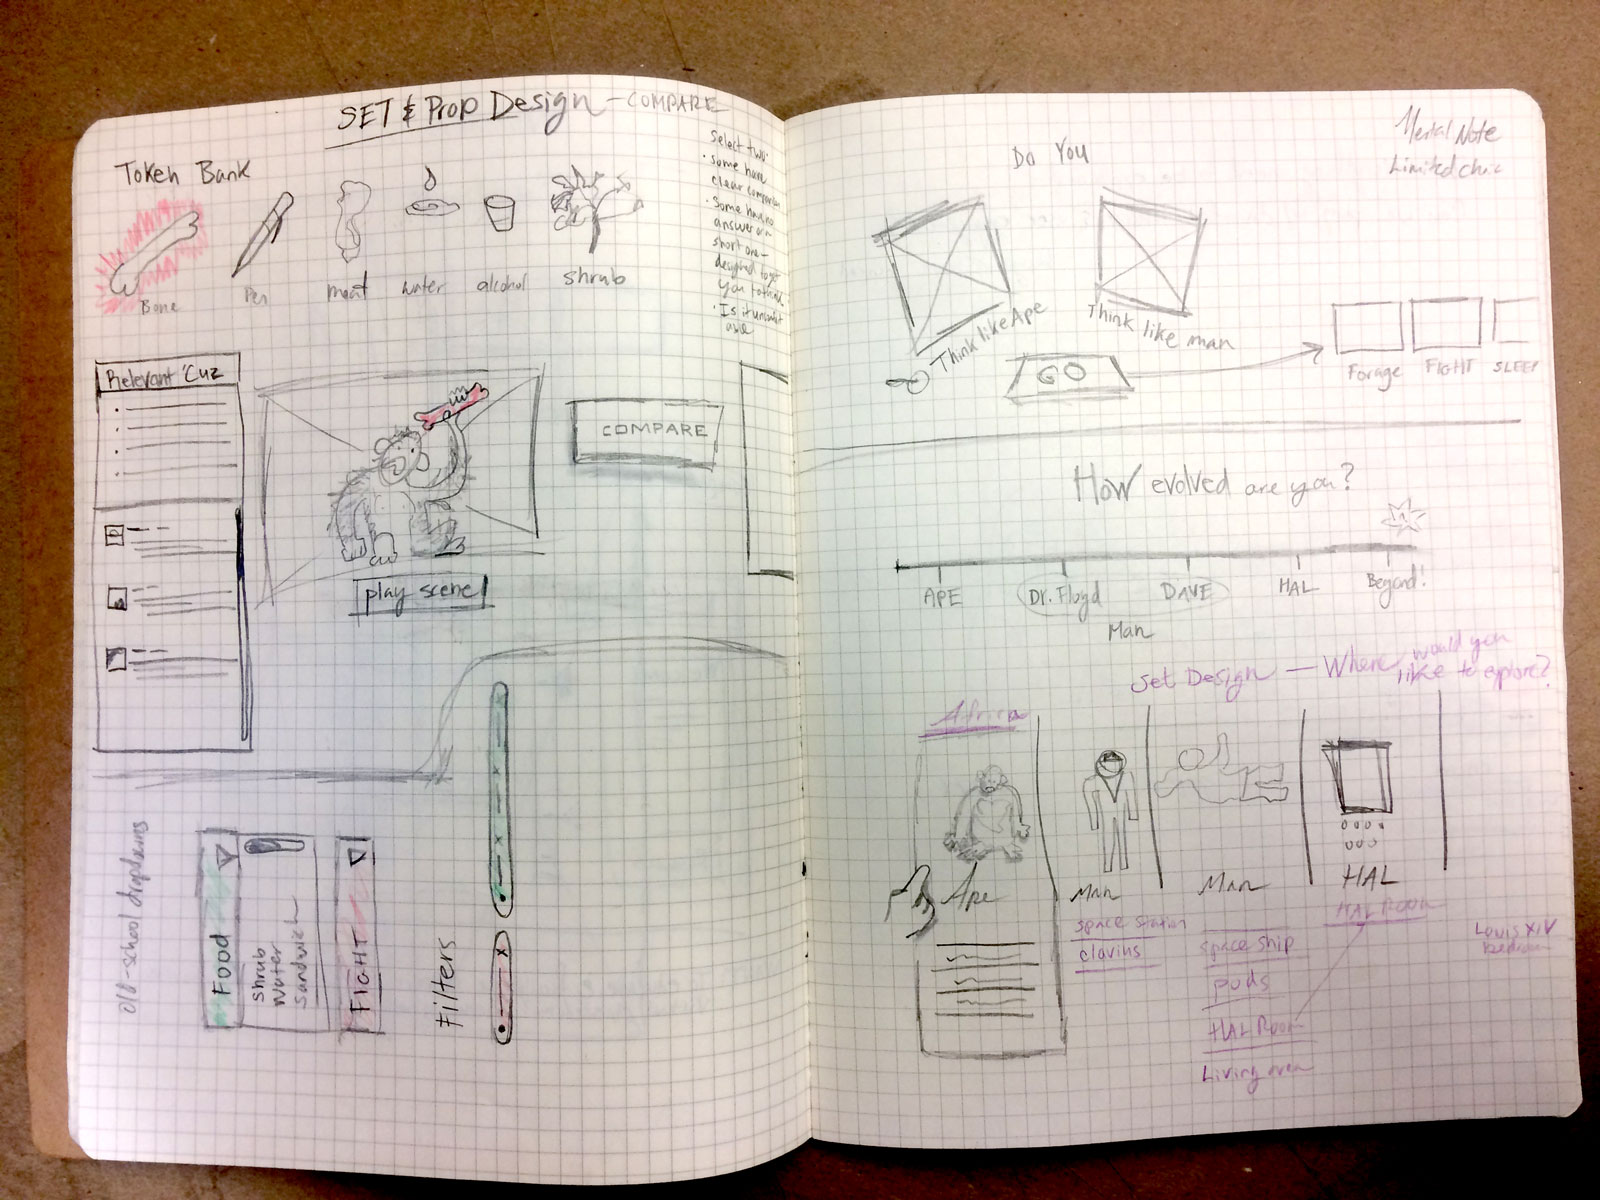 SET & Prop Design – COMPARE
Token Bank
Bone
Pen
meat
water
alcohol
shrub
Select two
· some have
clear comparison
· Some have no
answer or a
short one –
designed to get
you to think
· Is it
Relevant 'Cuz
COMPARE
play scene
old-school dropdowns
Food
shrub
water
sandwich
FIGHT
Filters
Mental Note
Limited
Do You
Think like Ape
Think like man
GO
Forage
FIGHT
SLEEP
How evolved are you?
APE
Dr. Floyd
DAVE
HAL
Beyond!
Man
Set Design – Where would you
like to explore?
Africa
Ape
Man
Man
HAL
space station
clavius
space ship
pods
HAL Room
Living area
HAL Room
Louis XIV
Bedroom